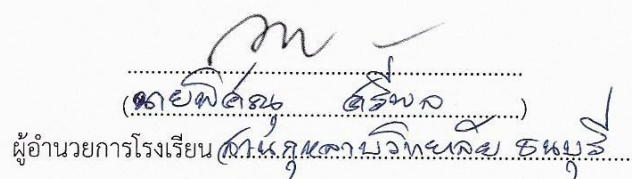 (นายพิศณุ ศรีพล)
ผู้อำนวยการโรงเรียนสวนกุหลาบวิทยาลัย ธนบุรี